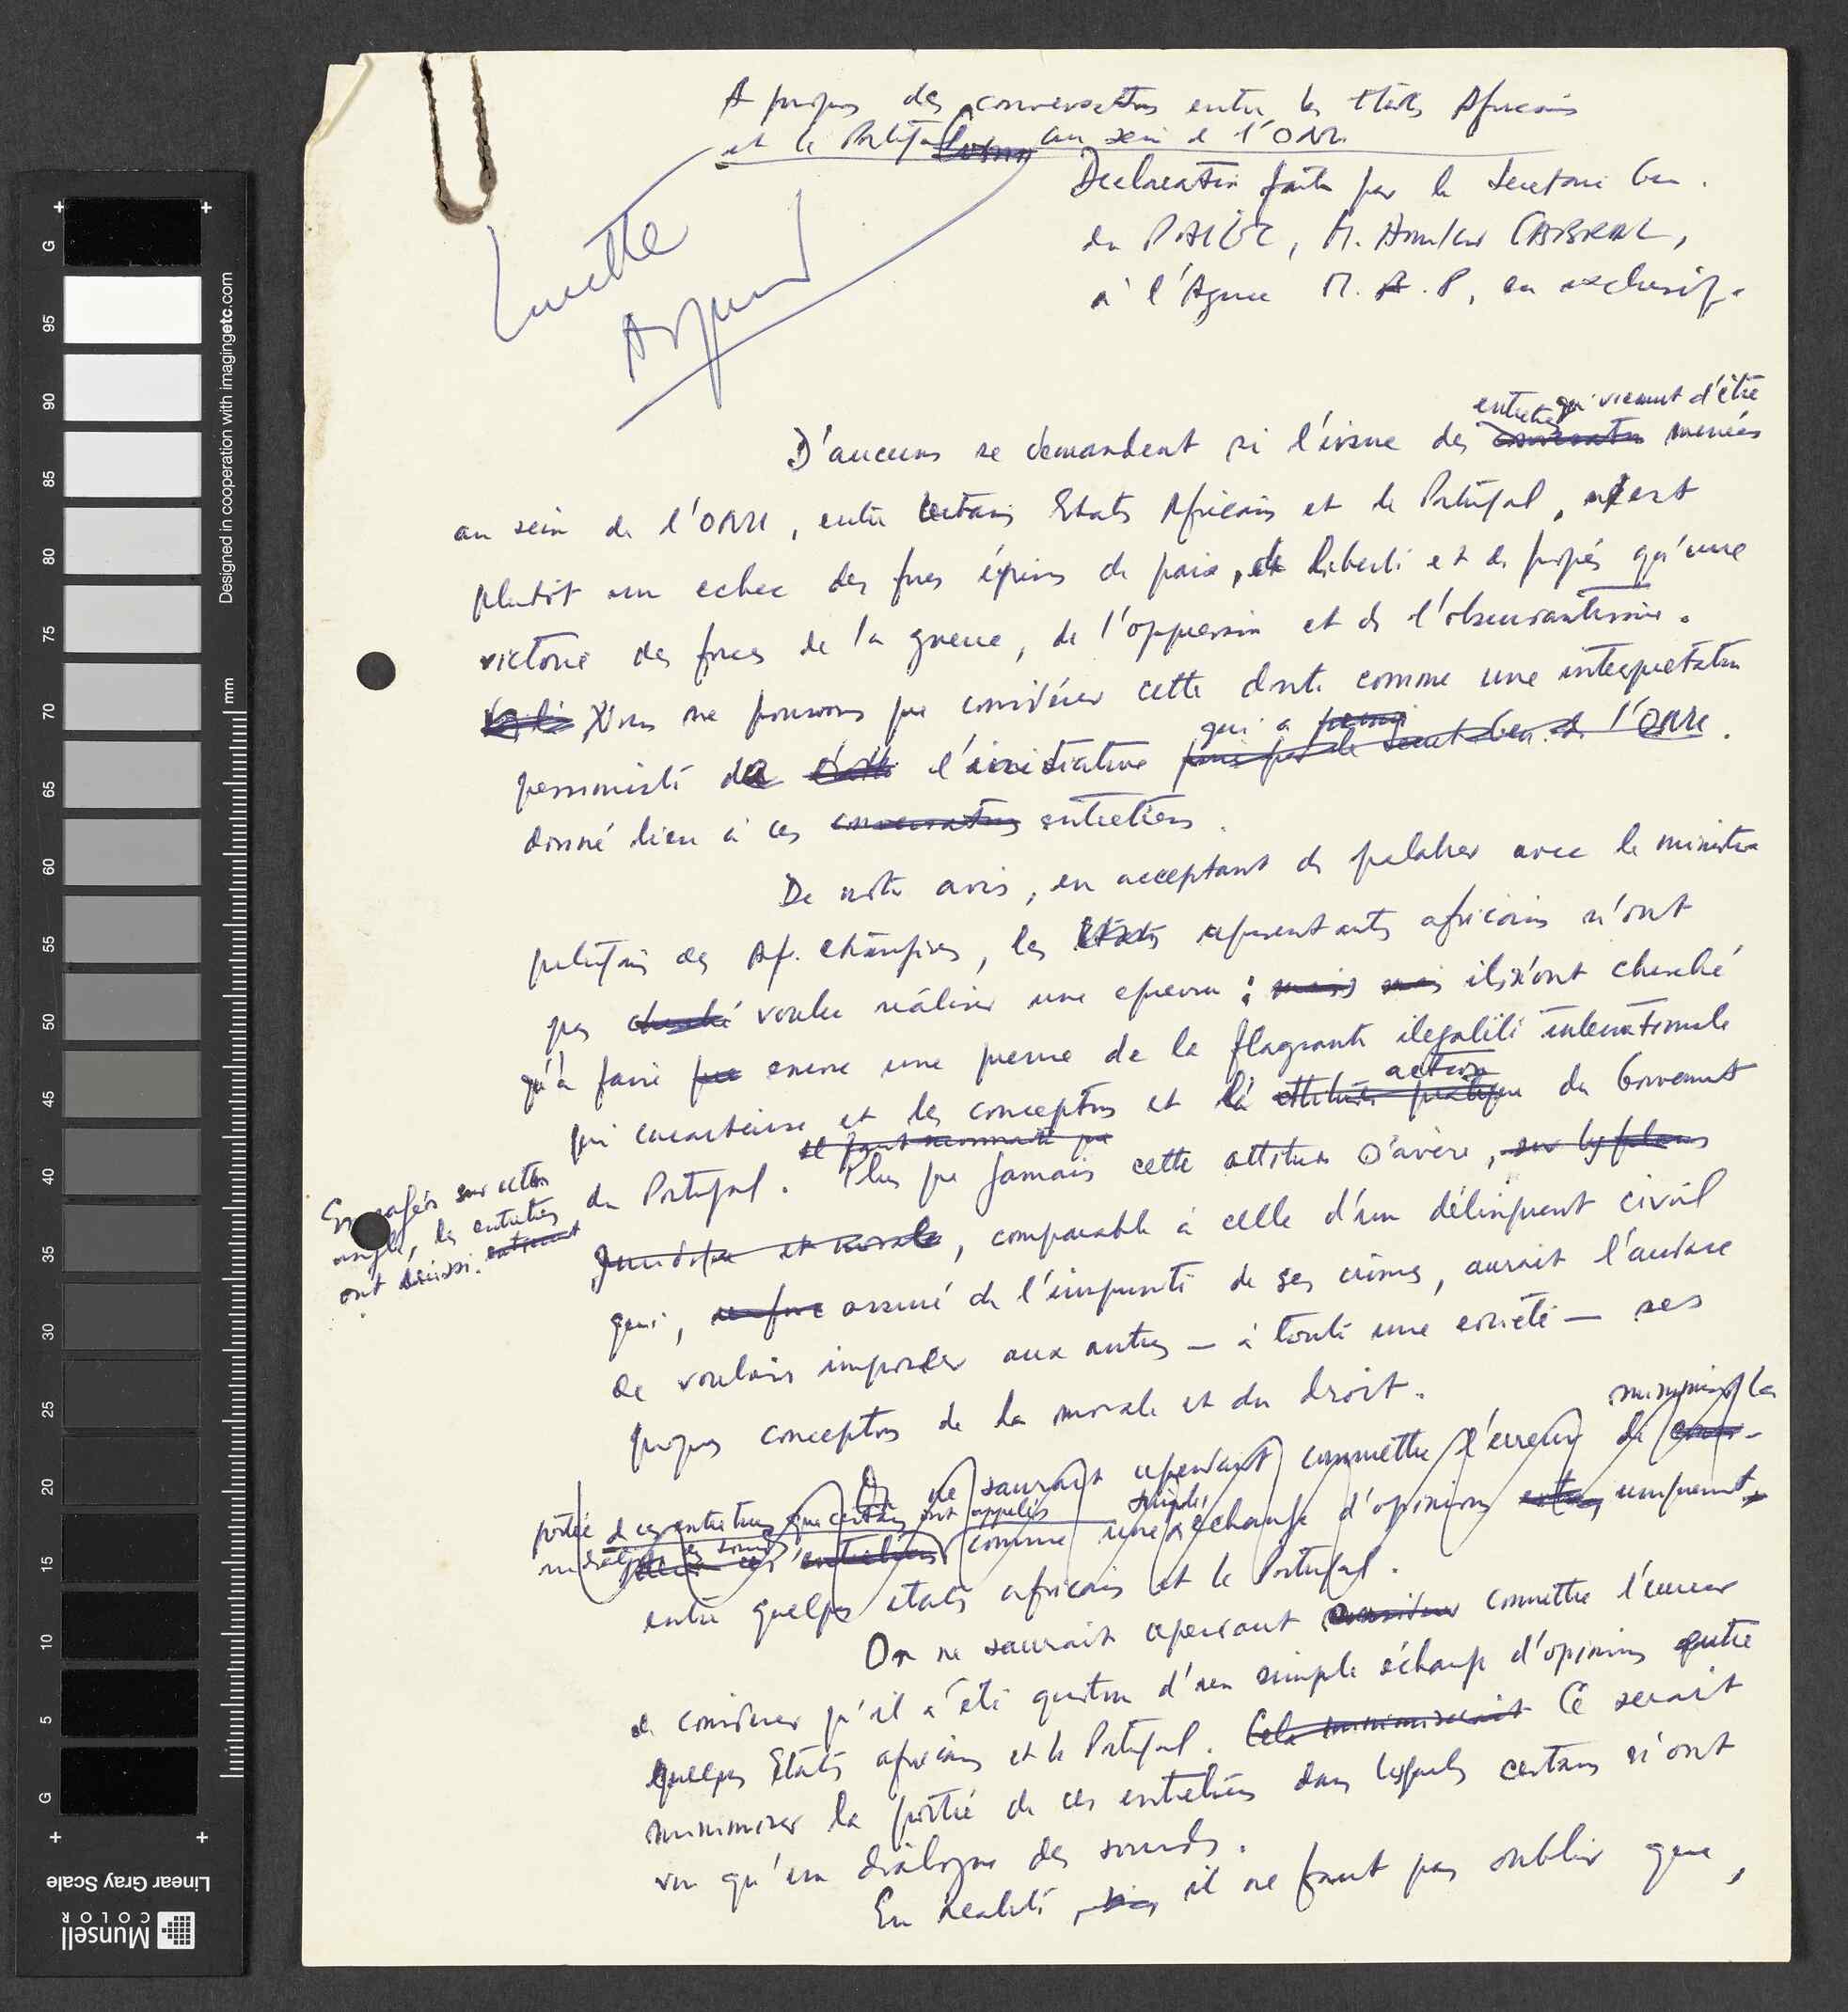 A propos des conversations entre les Etats Africains
et le Portugal au sein de l'ONU.
Declaration faite par le Secretaire Gen.
du PAIGC, M. Amilcar CABRAL,
à l'Agence M.A.P, en exclusif.
Lucette
entretiens qui viennent d'être
D'aucuns se demandent si l'issue des conversations menées
au sein de l'ONU, entre certains Etats Africains et le Portugal, n'est
plutôt un echec des forces éprises de paix, de liberté et de progrès qu'une
victoire des forces de la guerre, de l'oppression et de l'obscurantisme.
Nous ne pouvons que considérer cette doute comme une interpretation
qui a
pessimiste de l'initiative prise par le Secret. Gen. de l'ONU.
donné lieu à ces conversations entretiens.
De notre avis, en acceptant de palabrer avec le ministre
portugais des Af. etrangères, les Etats representants africains n'ont
pas cherché voulu réaliser une epreuve : mais mais ils n'ont cherché
qu'à faire encore une preuve de la flagrante ilegalité internationale
action
qui caracterise et les conceptions et la attitude pratique du Gouvernement
il faut reconnaitre que
du Portugal. Plus que jamais cette attitude s'avère, sur les plans
Envisagés sur cette
angle, les entretiens
ont réussi.
juridique et morale, comparable à celle d'un délinquent civil
qui, assuré de l'impunité de ses crimes, aurait l'audace
de vouloir imposer aux autres — à toute une société — ses
propres conceptions de la morale et du droit.
minimiser la
On ne saurait cependant commettre l'erreur de
portée de ces entretiens que certains ont appelés simples
dialogue des sourds entretiens comme un échange d'opinions uniquement
entre quelques etats africains et le Portugal.
On ne saurait cependant considerer commettre l'erreur
de considerer qu'il a été question d'un simple échange d'opinions entre
quelques Etats africains et le Portugal. Cela minimiserait Ce serait
minimiser la portée de ces entretiens dans lesquels certains n'ont
vu qu'un dialogue des sourds.
En realité, il ne faut pas oublier que,
Designed in cooperation with imagingetc.com
mm
G
95
90
85
80
75
70
65
60
55
50
45
40
35
30
25
20
15
10
5
G
Linear Gray Scale
Munsell
COLOR